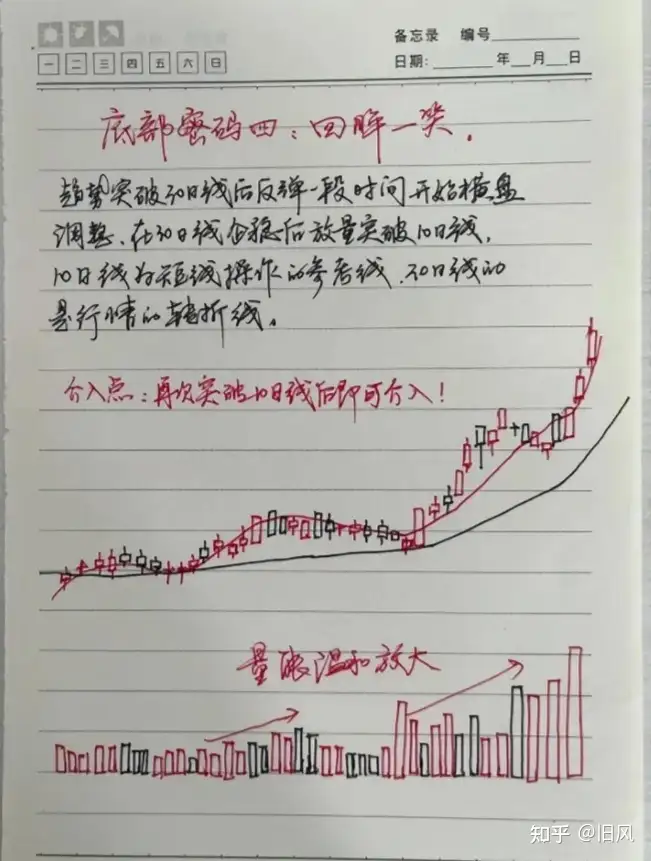 备忘录 编号
一 二 三 四 五 六 日
日期: 年 月 日
底部密码四:回眸一笑.
趋势突破30日线后反弹一段时间开始横盘
调整、在30日线企稳后放量突破10日线,
10日线为短线操作的参考线、30日线的
是行情的转折线。
介入点:再次突破10日线后即可介入!
量跟温和放大
知乎 @旧风